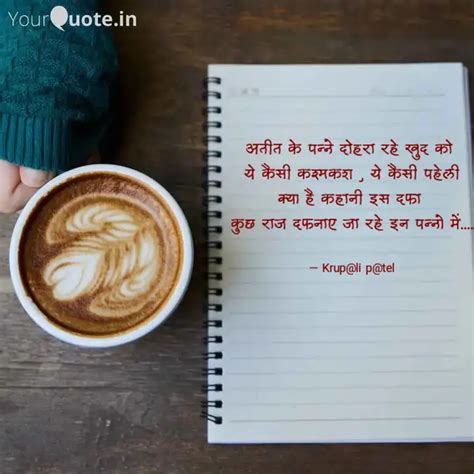 YourQuote.in
अतीत के पन्ने दोहरा रहे खुद को
ये कैसी कश्मकश , ये कैसी पहेली
क्या है कहानी इस दफा
कुछ राज दफनाए जा रहे इन पन्नो में....
— Krup@li p@tel